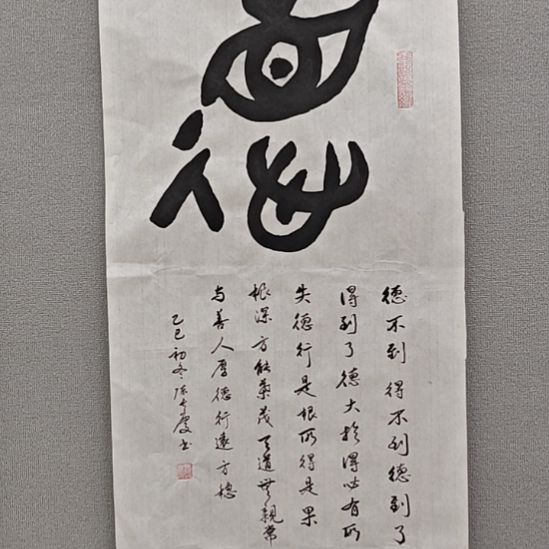 德
德不到得不到德到了
得到了德大於得必有所
失德行是根所得是果
根深方能葉茂天道無親常
与善人厚德行遠方穩
乙巳初冬陈 慶书